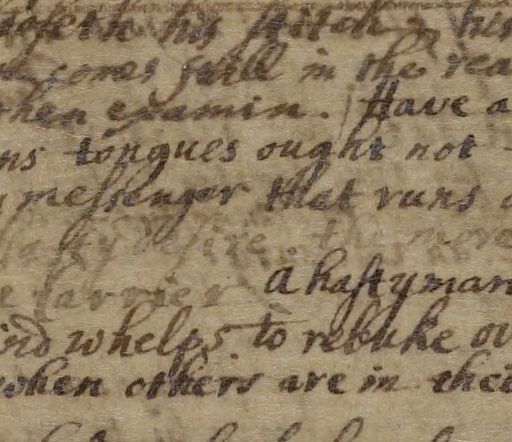 his stitch, his
comes full in the rea
when examin. Have a
ns tongues ought not
messenger that runs
desire. the more
e carrier A hasty man
ind whelps. to rebuke ov
when others are in thei